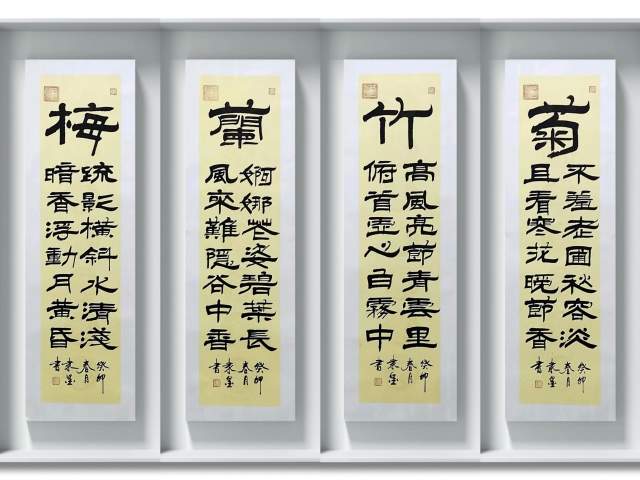 梅
疏影橫斜水清淺
暗香浮動月黃昏
癸卯
春月
書
蘭
婀娜花姿碧葉長
風來難隱谷中香
癸卯
春月
書
竹
高風亮節青雲里
俯首虛心白霧中
癸卯
春月
書
菊
不羞老圃秋容淡
且看寒花晚節香
癸卯
春月
書